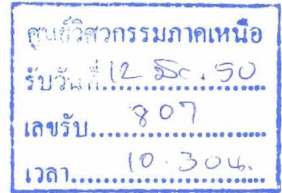 ศูนย์วิศวกรรมภาคเหนือ
รับวันที่ 12 มิย. 50
เลขรับ.....807
เวลา.....10.30น.